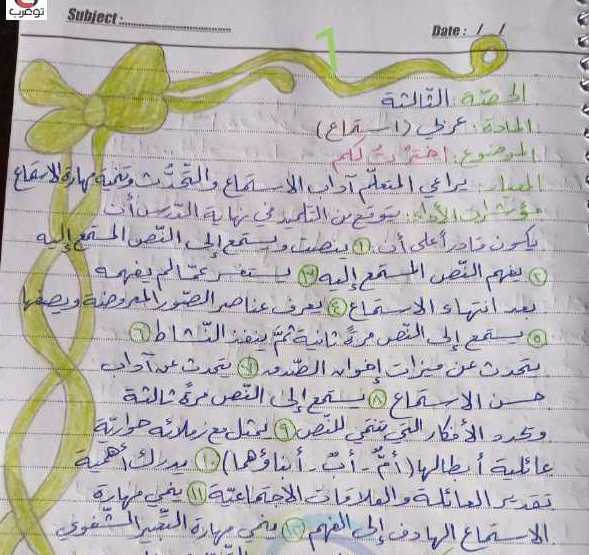 توعرب
Subject: Date: / /
1
الحصّة: الثّالثة
المادة: عربي (استماع)
الموضوع: اخترتُ لكم
المعيار: يراعي المتعلّم آداب الاستماع والتّحدُّث وتنمية مهارة الاستماع
مؤشرات الأداء: يتوقع من التلميذ في نهاية الدرس أن
يكون قادراً على أن: ① ينصت ويستمع إلى النّص المستمع إليه
② يفهم النّص المستمع إليه ③ يستفسر عمّا لم يفهمه
بعد انتهاء الاستماع ④ يعرف عناصر الصّور المعروضة ويصفها
⑤ يستمع إلى النّص مرةً ثانية ثمّ ينفذ النّشاط ⑥
يتحدث عن ميزات إخوان الصّدق ⑦ يتحدث عن آداب
حسن الاستماع ⑧ يستمع إلى النّص مرةً ثالثة
ويحدد الأفكار التي تنتمي للنّص ⑨ يمثل مع زملائه حواريّة
عائلية أبطالها (أمٌّ - أبٌ - أبناؤهما) ⑩ يدرك أهمّية
تقدير العائلة والعلاقات الاجتماعيّة ⑪ ينمي مهارة
الاستماع الهادف إلى الفهم ⑫ ينمي مهارة التّعبير الشّفوي